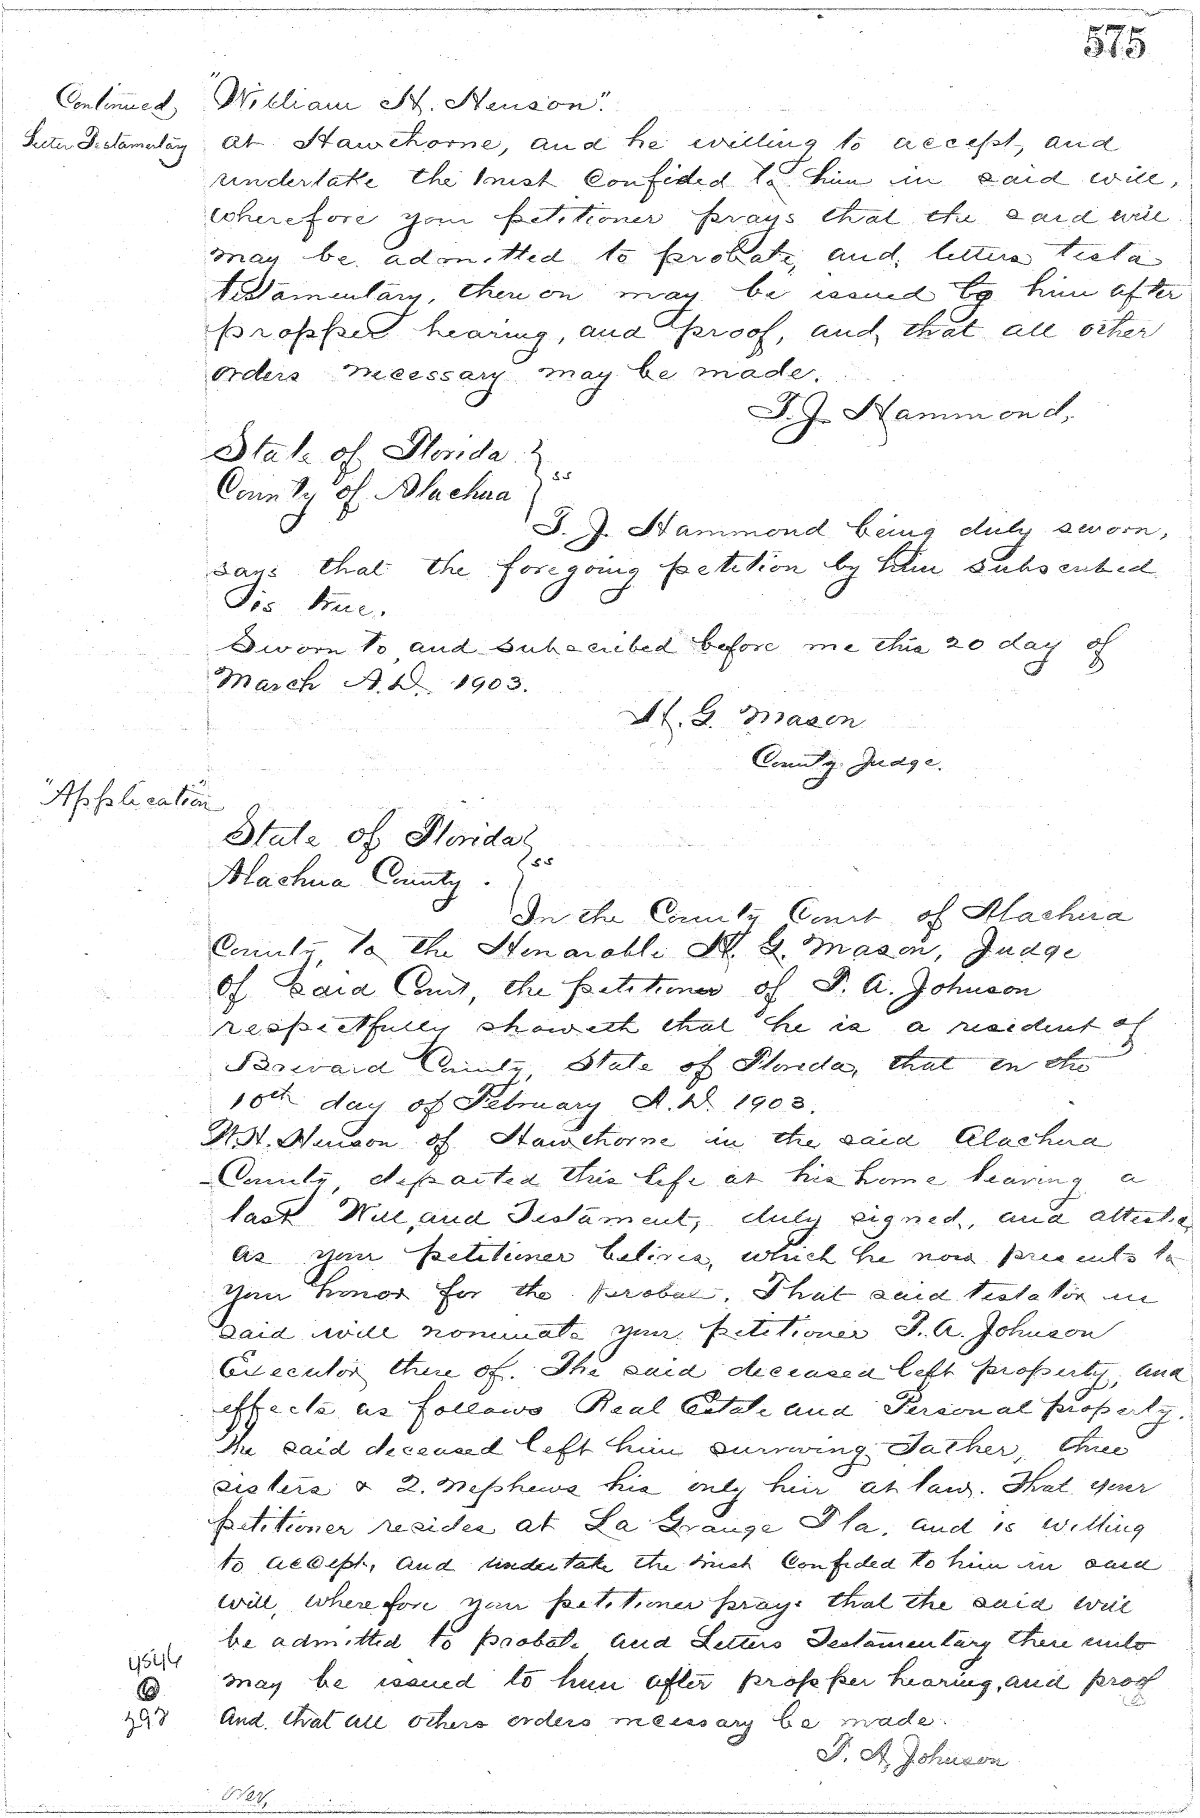 575
Continued,
Letter Testamentary
"William H. Henson".
at Hawthorne, and he willing to accept, and
undertake the trust Confided to him in said will,
wherefore your petitioner prays that the said will
may be admitted to probate, and, letters testa
testamentary, there on may be issued to him after
propper hearing, and proof, and, that all other
orders necessary may be made.
T. J. Hammond,
State of Florida }
County of Alachua } ss
T. J. Hammond being duly sworn,
says that the foregoing petition by him subscribed
is true.
Sworn to, and subscribed before me this 20 day of
March A.D. 1903.
H. G. Mason
County Judge.
"Application"
State of Florida }
Alachua County . } ss
In the County Court of Alachua
County, to the Honorable H. G. Mason, Judge
of said Court, the petitioner of T. A. Johnson
respectfully showeth that he is a resident of
Brevard County, State of Florida, that on the
10th day of February A.D. 1903.
W.H. Henson of Hawthorne in the said Alachua
County, departed this life at his home leaving a
last Will, and Testament, duly signed, and attested
as your petitioner belives, which he now presents to
your honor for the probat. That said testator in
said will nominate your petitioner T. A. Johnson
Executor there of. The said deceased left property, and
effects as follows Real Estate and Personal property.
The said deceased left him surviving Father, three
sisters & 2. Nephews his only heir at law. That your
petitioner resides at La Grange Fla. and is willing
to accept, and undertake the trust Confided to him in said
will, wherefore your petitioner prays that the said will
be admitted to probate and Letters Testamentary there unto
may be issued to him after propper hearing, and proof
and that all others orders necessary be made.
4546
398
T. A. Johnson
Over,